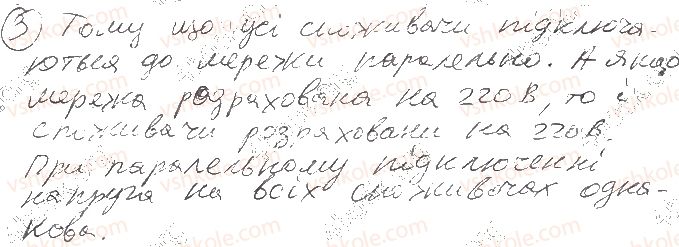 3) Тому що усі споживачи підключа-
ються до мережи паралельно. А якщо
мережа розрахована на 220 В, то і
споживачи розраховани на 220 В.
При паралельному підключенні
напруга на всіх споживачах одна-
кова.